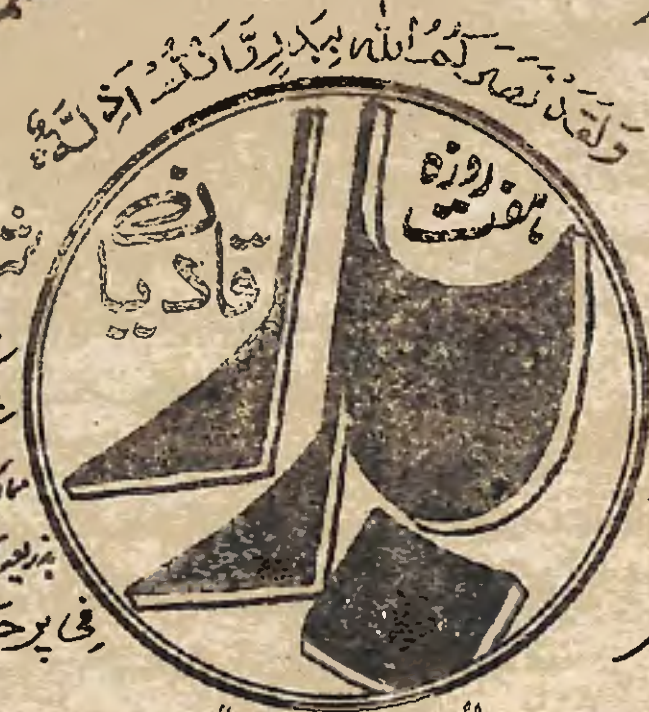 وَلَقَدۡ نَصَرَکُمُ اللّٰہُ بِبَدۡرٍ وَّاَنۡتُمۡ اَذِلَّۃٌ
ہفت روزہ
بدر
قادیان
فی پرچ